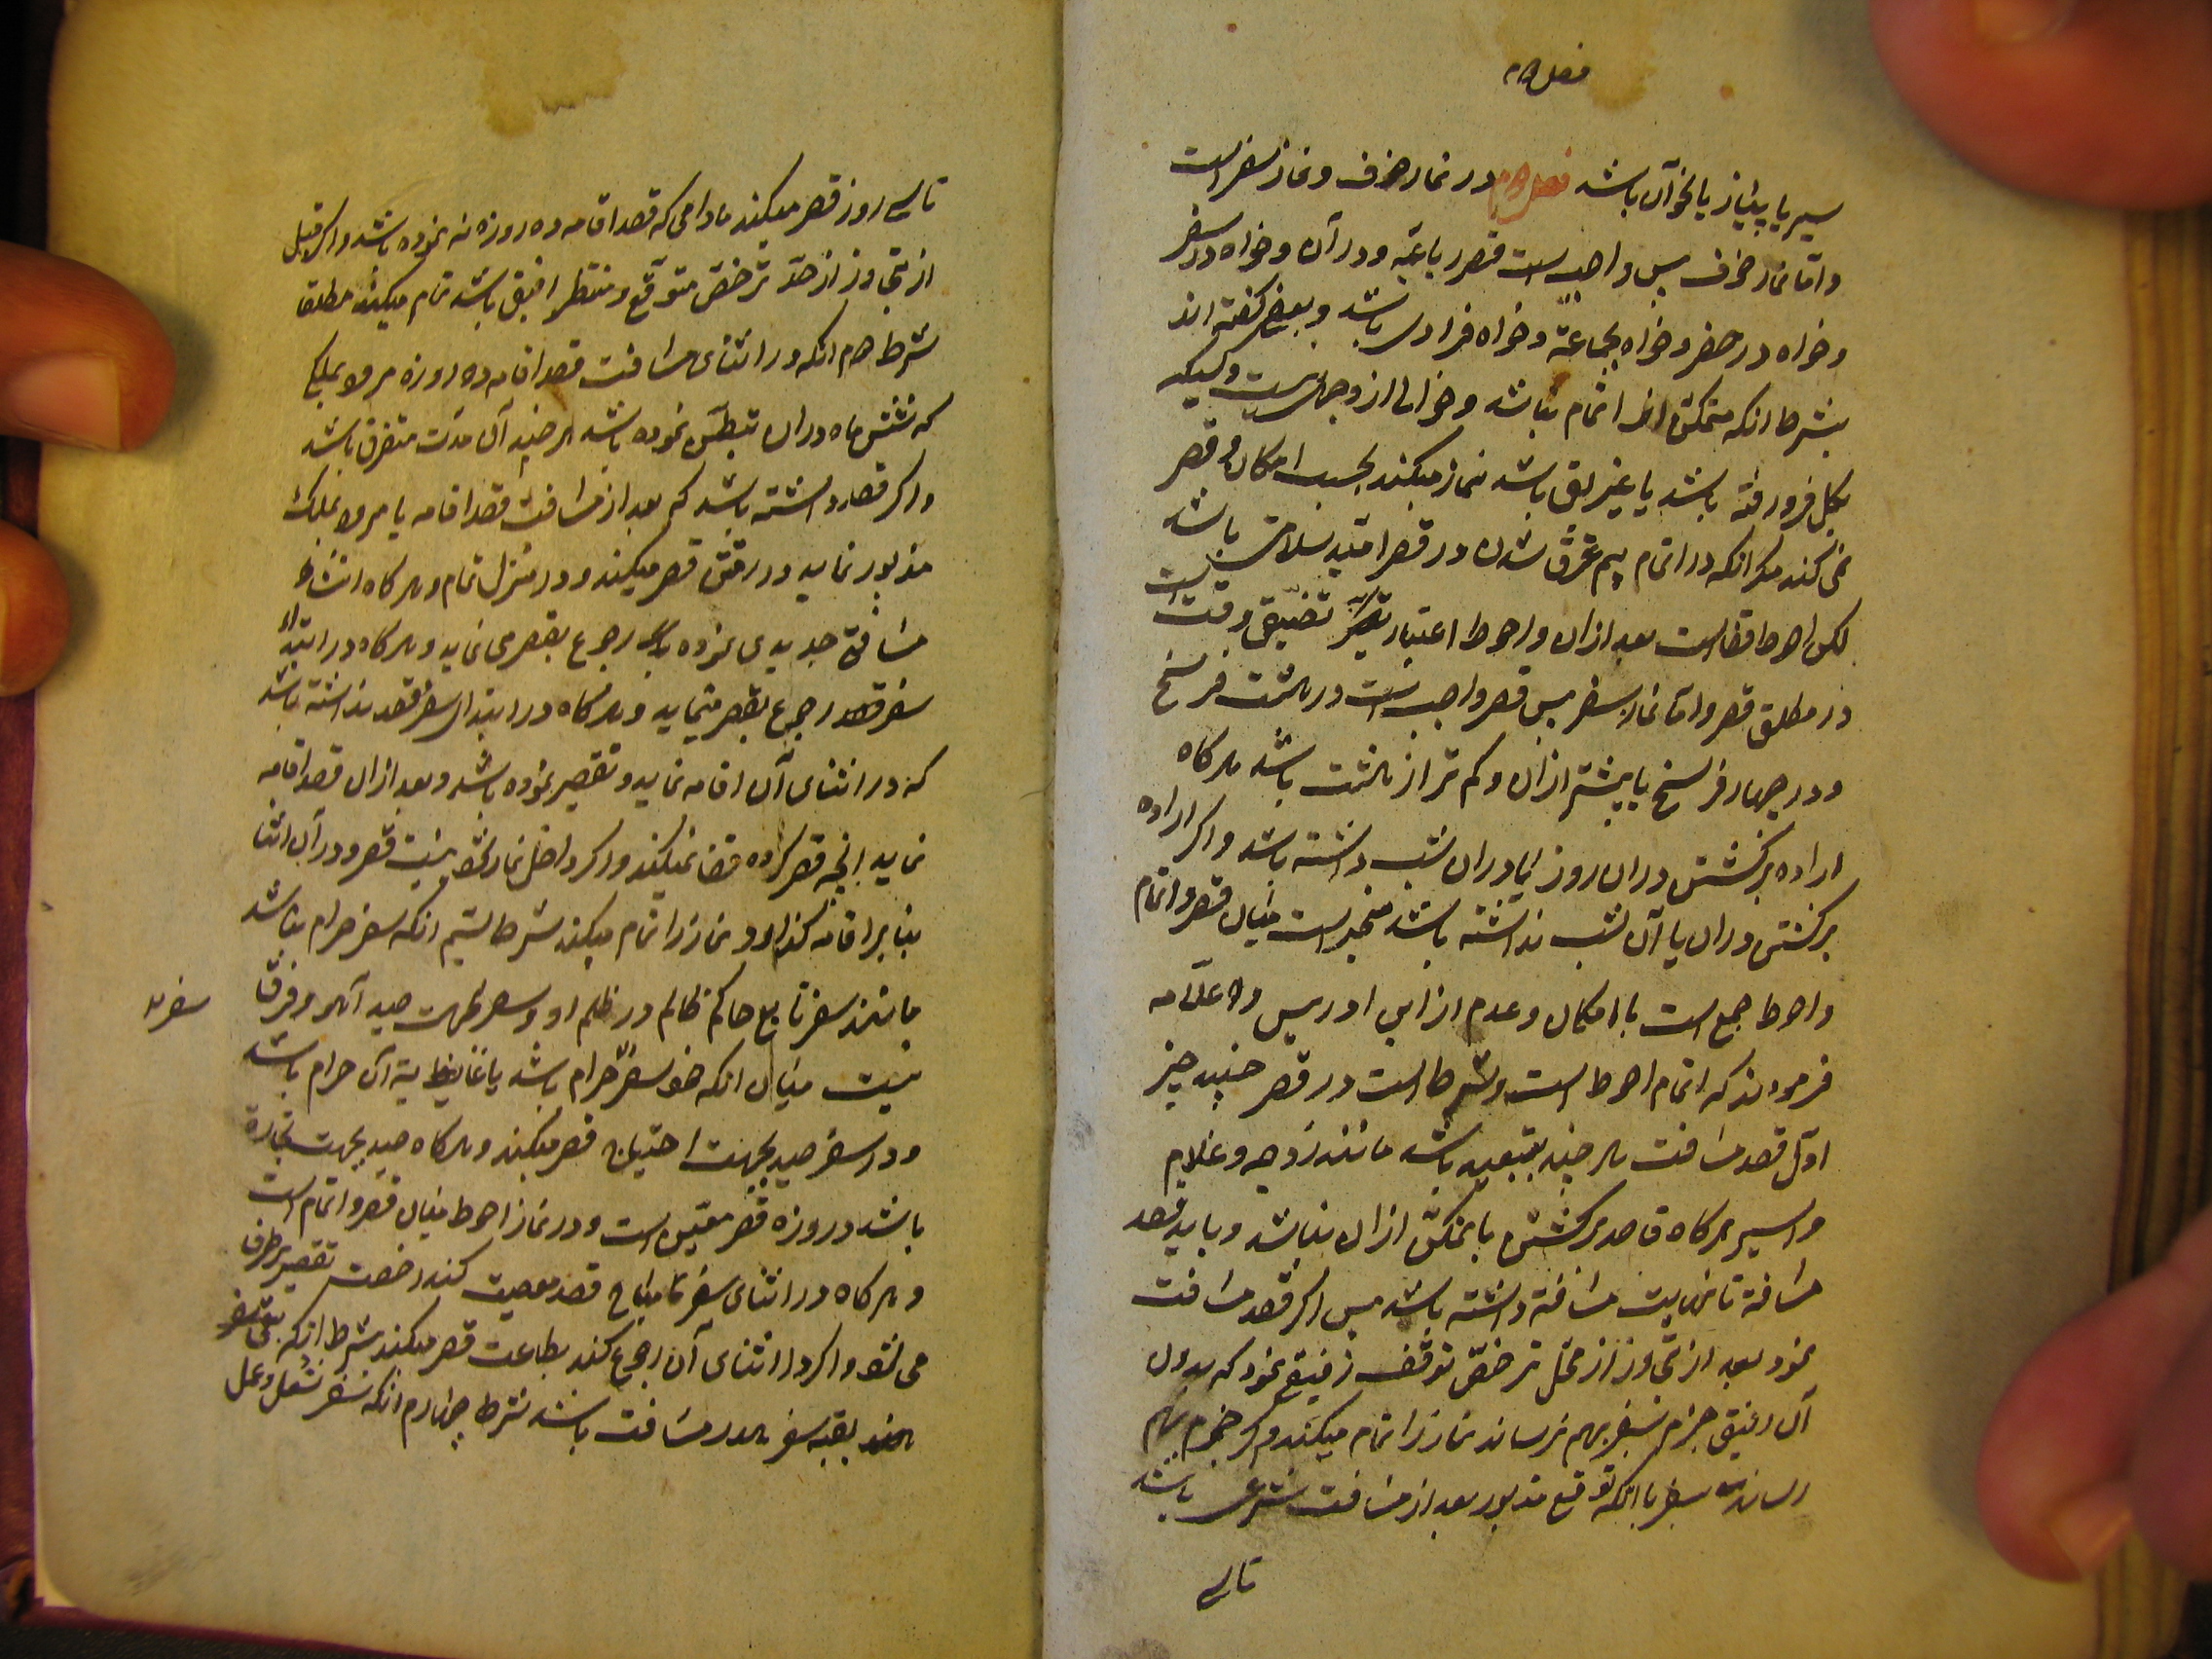 فصل دهم
سیر یا پیاز یا نحو آن باشد فصل دهم در نماز خوف و نماز سفر است
و اما نماز خوف پس واجب است قصر رباعیه و در آن و خواه در سفر
و خواه در حضر و خواه بجماعة و خواه فرادی باشد و بعضی گفته اند
بشرط آنکه متمکن از اتمام نباشد و خالی از وجهی نیست و کسیکه
بگل فرو رفته باشد یا غریق باشد نماز میکند بحسب امکان و قصر
نمی کند مگر آنکه در اتمام بیم غرق شدن و در قصر امید سلامتی باشد
لکن احوط قضا است بعد از آن و احوط اعتبار تضییق وقت است
در مطلق قصر و اما نماز سفر پس قصر واجب است در هشت فرسخ
و در چهار فرسخ یا بیشتر از آن و کم تر از هشت باشد هر گاه
اراده برگشتن در آن روز یا در آن شب داشته باشد و اگر اراده
برگشتن در آن یا آن شب نداشته باشد مخیر است میان قصر و اتمام
و احوط جمع است با امکان و عدم از ابن ادریس و علامه
فرمودند که اتمام احوط است و شرط است در قصر چند چیز
اول قصد مسافت هر چند بتبعیه باشد مانند زوجه و غلام
و اسیر هر گاه قاصد برگشتن با تمکن از آن نباشد و باید قصد
مسافة تا نهایت مسافة داشته باشد پس اگر قصد مسافت
نمود بعد از تجاوز از محل ترخص توقف رفیق نمود که بدون
آن رفیق جزم بسفر بهم نرساند نماز را تمام میکند و اگر جزم بهم
رساند بسفر با آنکه توقع مذبور بعد از مسافت شرعی باشد
تا سی
تا سی روز قصر میکند مادامی که قصد اقامه ده روزه نه نموده باشد و اگر قبل
از تجاوز از حد ترخص متوقع و منتظر رفیق باشد تمام میکند مطلقا
شرط دوم آنکه در اثنای مسافت قصد اقامه ده روزه مرور بملکی
که شش ماه در آن توطن نموده باشد هر چند آن مدت متفرق باشد
و اگر قصد داشته باشد که بعد از مسافت قصد اقامه یا مرور بملک
مذبور نماید در رفتن قصر میکند و در منزل تمام و هر گاه انشاء
مسافت جدیدی نموده باشد رجوع بقصر می نماید و هر گاه در ابتداء
سفر قصد رجوع بقصر مینماید و هر گاه در ابتدای سفر قصد نداشته باشد
که در اثنای آن اقامه نماید و تقصیر نموده باشد و بعد از آن قصد اقامه
نماید آنچه قصر کرده قضا نمیکند و اگر داخل نماز شود بنیت قصر و در آن اثنا
بنا بر اقامه گذارد و نماز را تمام میکند شرط سیم آنکه سفر حرام نباشد
مانند سفر تابع حاکم ظالم در ظلم او و سفر بجهت صید لهو و فرقی
سفر
نیست میان آنکه خود سفر حرام باشد یا غایة آن حرام باشد
و در سفر صید بجهت احتیاج قصر میکند و هر گاه صید بجهت تجارة
باشد در روزه قصر معین است و در نماز احوط میان قصر و اتمام است
و هر گاه در اثنای سفر مباح قصد معصیت کند رخصت تقصیر برطرف
می شود و اگر در اثنای آن رجوع کند بطاعت قصر میکند بشرط آنکه
بقیه سفر بقدر مسافت باشد شرط چهارم آنکه سفر شغل و عمل